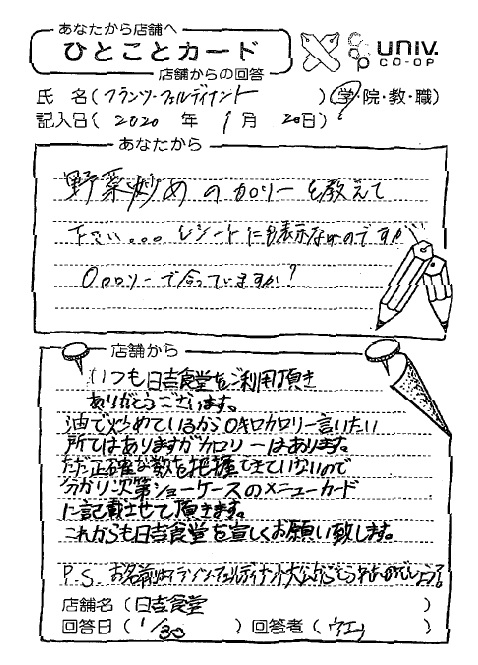 あなたから店舗へ
ひとことカード
店舗からの回答
UNIV.
CO-OP
氏 名(フランツ・フェルディナント )(学・院・教・職)
記入日( 2020 年 1 月 20日)
あなたから
野菜炒めのカロリーを教えて
下さい。。。レシートにも表示なしのですが
0カロリーで合っていますか?
店舗から
いつも日吉食堂をご利用頂き
ありがとうございます。
油で炒めているから0キロカロリー言いたい
所ではありますがカロリーはあります。
ただ正確な数を把握できていないので
分かり次第ショーケースのメニューカード
に記載させて頂きます。
これからも日吉食堂を宜しくお願い致します。
P.S. お名前はフランツ・フェルディナント大公から
店舗名(日吉食堂 )
回答日( 1/30 )回答者( )